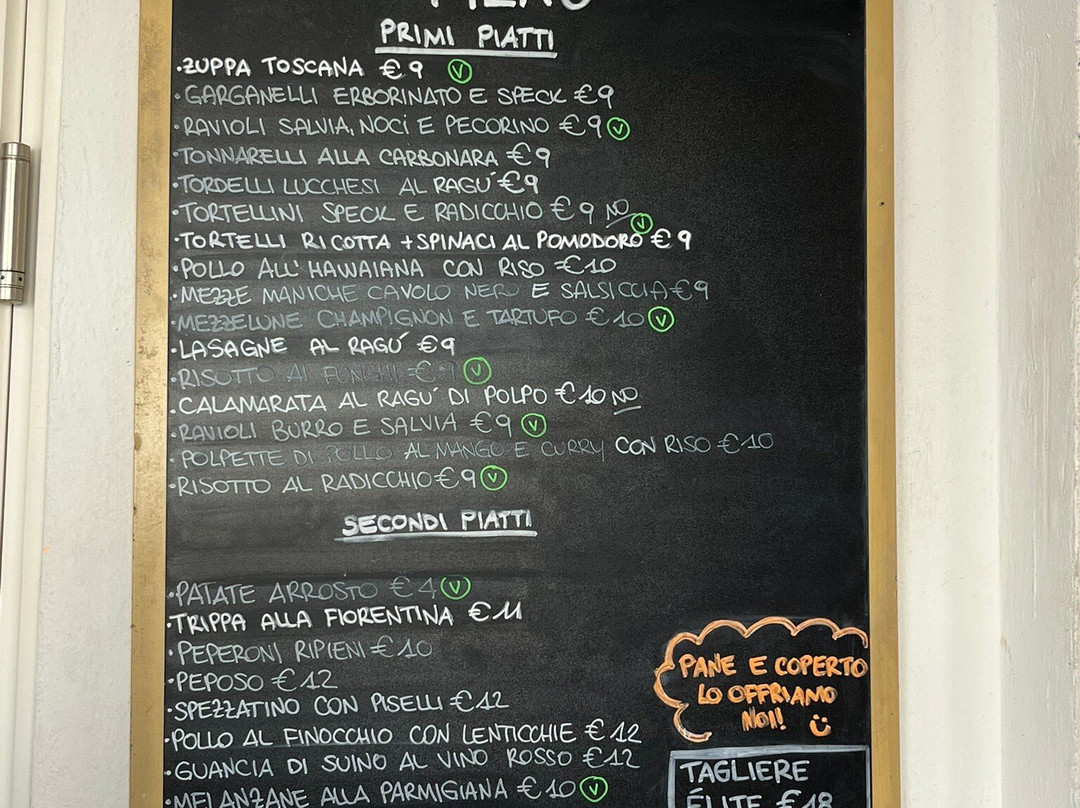 MENÙ
PRIMI PIATTI
·ZUPPA TOSCANA €9 V
·GARGANELLI ERBORINATO E SPECK €9
·RAVIOLI SALVIA, NOCI E PECORINO €9 V
·TONNARELLI ALLA CARBONARA €9
·TORDELLI LUCCHESI AL RAGU' €9
·TORTELLINI SPECK E RADICCHIO €9 NO
·TORTELLI RICOTTA + SPINACI AL POMODORO €9 V
·POLLO ALL'HAWAIANA CON RISO €10
·MEZZE MANICHE CAVOLO NERO E SALSICCIA €9
·MEZZELUNE CHAMPIGNON E TARTUFO €10 V
·LASAGNE AL RAGU' €9
·RISOTTO AI FUNGHI €9 V
·CALAMARATA AL RAGU' DI POLPO €10 NO
·RAVIOLI BURRO E SALVIA €9 V
·POLPETTE DI POLLO AL MANGO E CURRY CON RISO €10
·RISOTTO AL RADICCHIO €9 V
SECONDI PIATTI
·PATATE ARROSTO €4 V
·TRIPPA ALLA FIORENTINA €11
·PEPERONI RIPIENI €10
·PEPOSO €12
·SPEZZATINO CON PISELLI €12
·POLLO AL FINOCCHIO CON LENTICCHIE €12
·GUANCIA DI SUINO AL VINO ROSSO €12
·MELANZANE ALLA PARMIGIANA €10 V
PANE E COPERTO
LO OFFRIAMO
NOI!
TAGLIERE
ÉLITE €18